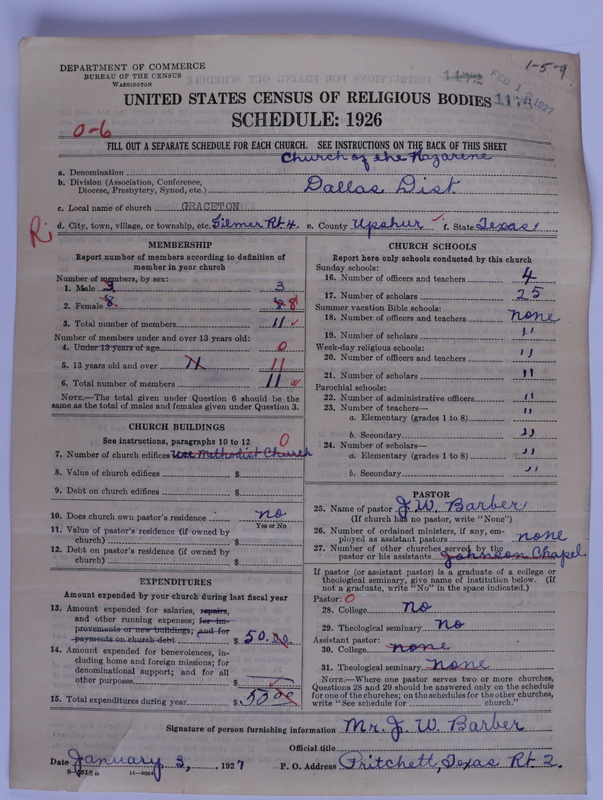 DEPARTMENT OF COMMERCE
BUREAU OF THE CENSUS
WASHINGTON
1-5-9
1172
FEB 1 8 1927
1176
UNITED STATES CENSUS OF RELIGIOUS BODIES
SCHEDULE: 1926
0-6
FILL OUT A SEPARATE SCHEDULE FOR EACH CHURCH. SEE INSTRUCTIONS ON THE BACK OF THIS SHEET
a. Denomination Church of the Nazarene
b. Division (Association, Conference, Diocese, Presbytery, Synod, etc.) Dallas Dist
c. Local name of church GRACETON
d. City, town, village, or township, etc. Gilmer Rt 4 e. County Upshur f. State Texas
R
MEMBERSHIP
Report number of members according to definition of member in your church
Number of members, by sex:
1. Male 3 3
2. Female 8 8 8
3. Total number of members 11
Number of members under and over 13 years old:
4. Under 13 years of age 0
5. 13 years old and over 11 11
6. Total number of members 11
NOTE.—The total given under Question 6 should be the same as the total of males and females given under Question 3.
CHURCH BUILDINGS
See instructions, paragraphs 10 to 12 0
7. Number of church edifices Use Methodist Church
8. Value of church edifices $
9. Debt on church edifices $
10. Does church own pastor's residence no
Yes or No
11. Value of pastor's residence (if owned by church) $
12. Debt on pastor's residence (if owned by church) $
EXPENDITURES
Amount expended by your church during last fiscal year
13. Amount expended for salaries, repairs, and other running expenses; for improvements or new buildings; and for payments on church debt $ 50.00
14. Amount expended for benevolences, including home and foreign missions; for denominational support; and for all other purposes $
15. Total expenditures during year $ 50 00
CHURCH SCHOOLS
Report here only schools conducted by this church
Sunday schools:
16. Number of officers and teachers 4
17. Number of scholars 25
Summer vacation Bible schools:
18. Number of officers and teachers none
19. Number of scholars 11
Week-day religious schools:
20. Number of officers and teachers 11
21. Number of scholars "
Parochial schools:
22. Number of administrative officers "
23. Number of teachers—
a. Elementary (grades 1 to 8) "
b. Secondary "
24. Number of scholars—
a. Elementary (grades 1 to 8) "
b. Secondary "
PASTOR
25. Name of pastor J. W. Barber
(If church has no pastor, write "None")
26. Number of ordained ministers, if any, employed as assistant pastors none
27. Number of other churches served by the pastor or his assistants Johnson Chapel
If pastor (or assistant pastor) is a graduate of a college or theological seminary, give name of institution below. (If not a graduate, write "No" in the space indicated.)
Pastor: 0
28. College no
29. Theological seminary no
Assistant pastor:
30. College none
31. Theological seminary none
NOTE.—Where one pastor serves two or more churches, Questions 28 and 29 should be answered only on the schedule for one of the churches; on the schedules for the other churches, write "See schedule for church."
Signature of person furnishing information Mr. J. W. Barber
Official title
Date January 3, 1927 P. O. Address Pritchett, Texas Rt. 2.
8-5518 a 11-9054